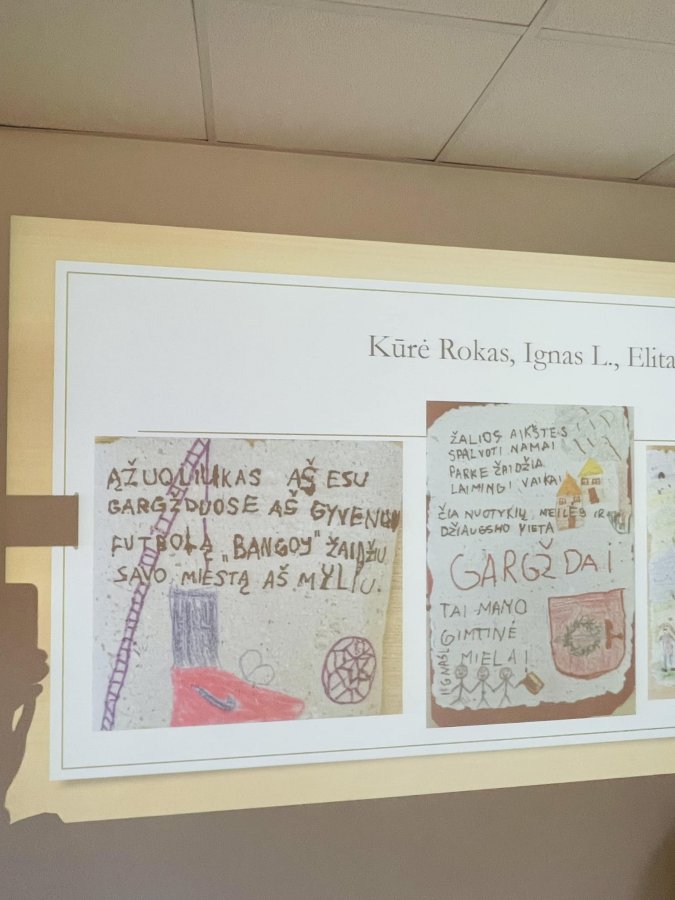 Kūrė Rokas, Ignas L., Elita
ĄŽUOLIUKAS AŠ ESU
GARGŽDUOSE AŠ GYVENU
FUTBOLĄ „BANGOJ" ŽAIDŽIU
SAVO MIESTĄ AŠ MYLIU.
ŽALIOS AIKŠTĖS
SPALVOTI NAMAI
PARKE ŽAIDŽIA
LAIMINGI VAIKAI
ČIA NUOTYKIŲ MEILĖS IR
DŽIAUGSMO VIETA
GARGŽDAI
TAI MANO
GIMTINĖ
MIELAI
IGNAS L